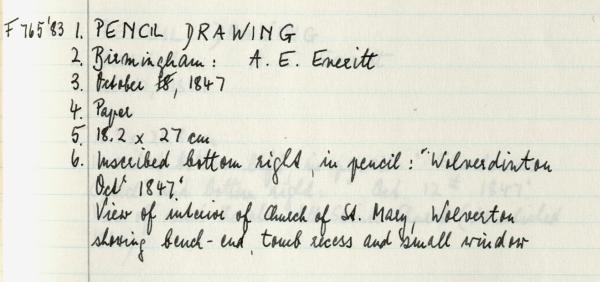 F765'83 1. PENCIL DRAWING
2. Birmingham: A. E. Everitt
3. October 18, 1847
4. Paper
5. 18.2 x 27 cm
6. Inscribed bottom right, in pencil: "Wolverdinton
Octr 1847'.
View of interior of Church of St. Mary, Wolverton
showing bench-end, tomb recess and small window